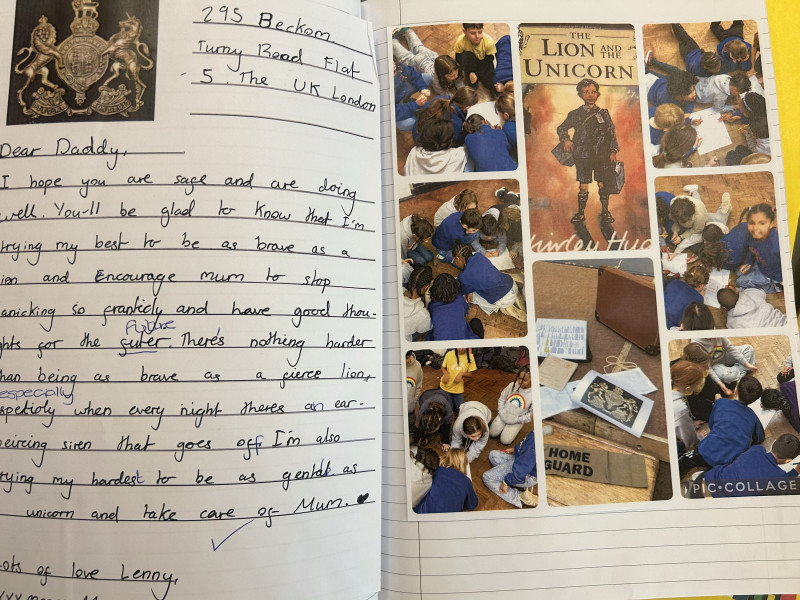 295 Beckom
Turny Road Flat
5. The UK London
Dear Daddy,
I hope you are sage and are doing
well. You-ll be glad to know that I'm
trying my best to be as brave as a
lion and Encourage mum to stop
panicking so franticly and have good thou-
ghts for the futer. There's nothing harder
Future
than being as brave as a fierce lion,
especially
when every night theres an ear-
peircing siren that goes off I'm also
trying my hardest to be as as
unicorn and take care of Mum.
Lots of love Lenny,
THE
LION AND THE
UNICORN
Shirley Hug
HOME
GUARD
PIC•COLLAGE